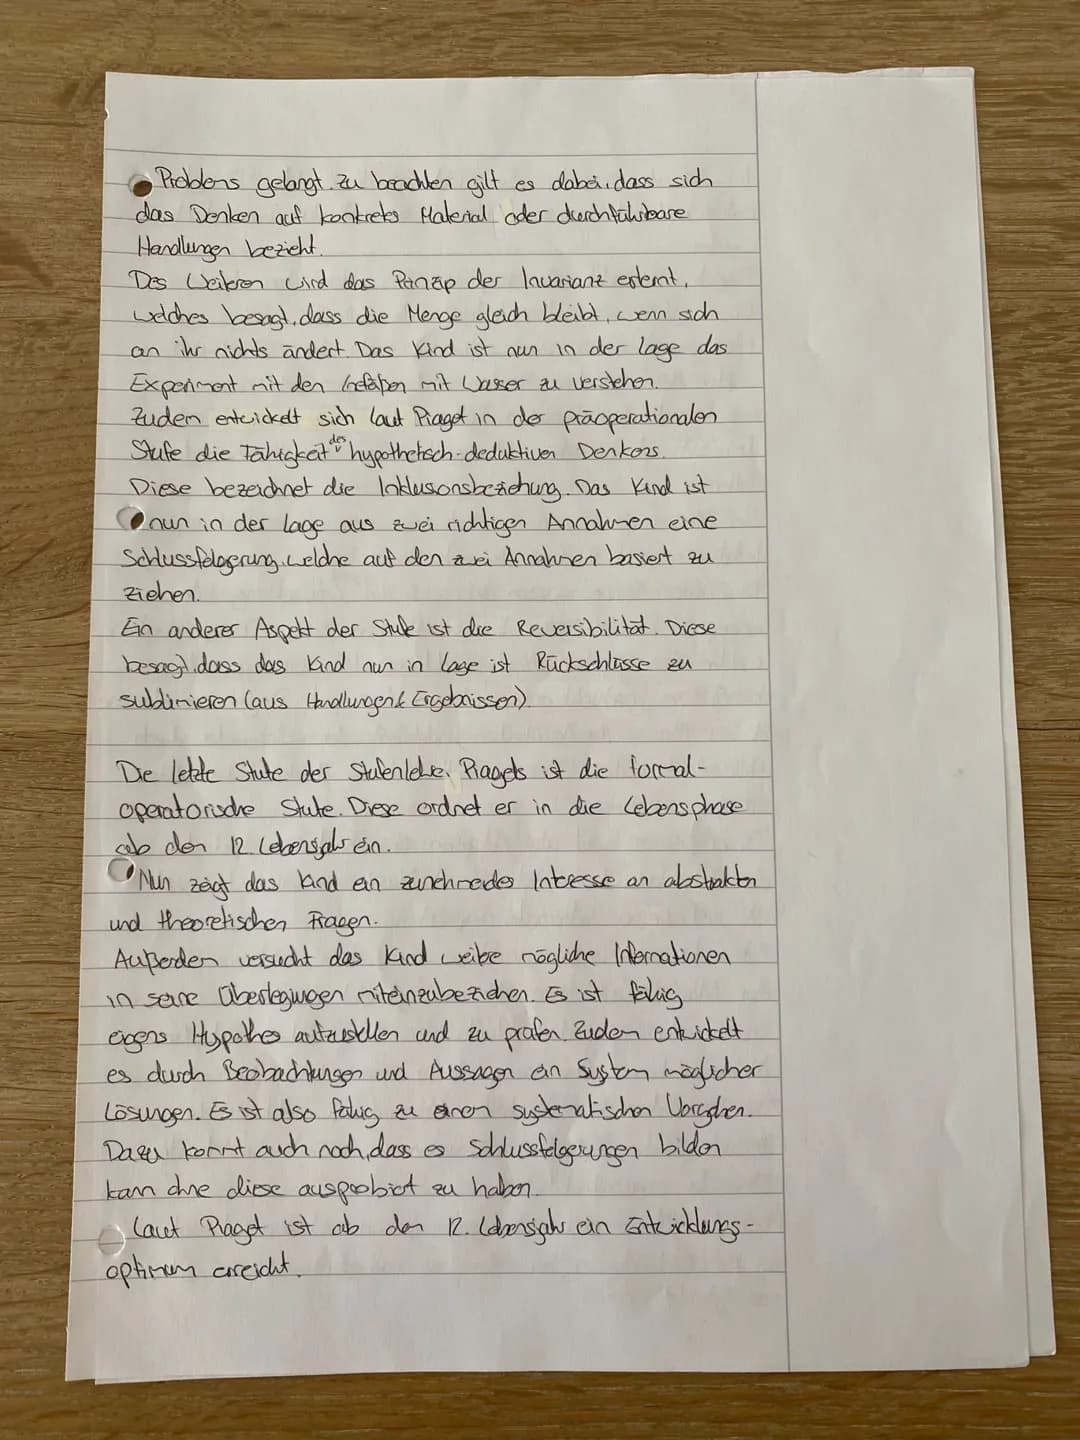 Problems gelangt. Zu beachten gilt es dabei, dass sich
das Denken auf konkretes Material oder durchführbare
Handlungen bezieht.
Des Weiteren wird das Prinzip der Invarianz erlernt,
welches besagt, dass die Menge gleich bleibt, wenn sich
an ihr nichts ändert. Das Kind ist nun in der Lage das
Experiment mit den Gefäßen mit Wasser zu verstehen.
Zudem entwickelt sich laut Piaget in der präoperationalen
Stufe die Fähigkeit des hypothetisch-deduktiven Denkens.
Diese bezeichnet die Inklusionsbeziehung. Das Kind ist
nun in der Lage aus zwei richtigen Annahmen eine
Schlussfolgerung, welche auf den zwei Annahmen basiert zu
ziehen.
Ein anderer Aspekt der Stufe ist die Reversibilität. Diese
besagt, dass das Kind nun in Lage ist Rückschlüsse zu
sublimieren (aus Handlungen & Ergebnissen).
Die letzte Stufe der Stufenlehre Piagets ist die formal-
operatorische Stufe. Diese ordnet er in die Lebensphase
ab den 12. Lebensjahr ein.
Nun zeigt das Kind ein zunehmendes Interesse an abstrakten
und theoretischen Fragen.
Außerdem versucht das Kind weitere mögliche Informationen
in seine Überlegungen miteinzubeziehen. Es ist fähig
eigens Hypothes aufzustellen und zu prüfen. Zudem entwickelt
es durch Beobachtungen und Aussagen ein System möglicher
Lösungen. Es ist also fähig zu einem systematischen Vorgehen.
Dazu kommt auch noch, dass es Schlussfolgerungen bilden
kann ohne diese ausprobiert zu haben.
Laut Piaget ist ab den 12. Lebensjahr ein Entwicklungs-
optimum erreicht.